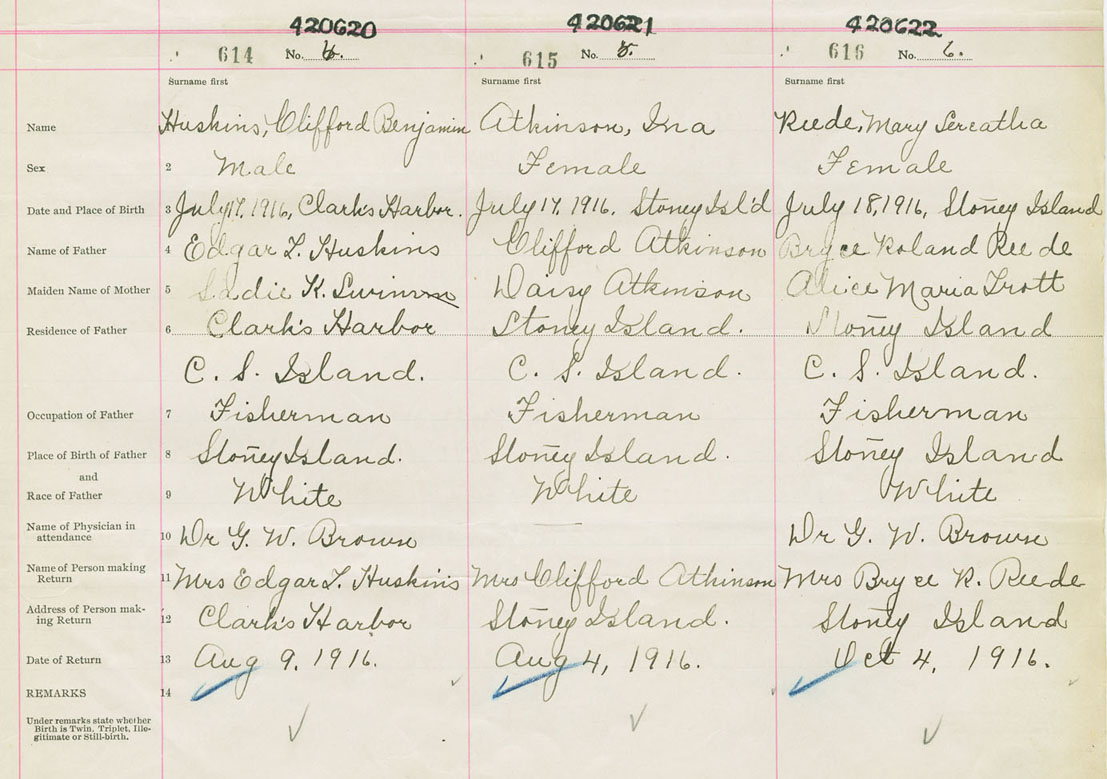 420620 420621 420622
614 No. 615 No. 5. 616 No. 6.
Surname first Surname first Surname first
Name Huskins, Clifford Benjamin Atkinson, Ina Reede, Mary
Sex 2 Male Female Female
Date and Place of Birth 3 July 17, 1916, Clark's Harbor. July 17, 1916. Stoney Isl'd July 18, 1916, Stoney Island
Name of Father 4 Edgar L. Huskins Clifford Atkinson Bryce Roland Reede
Maiden Name of Mother 5 Sadie K. Daisy Atkinson Alice Maria Trott
Residence of Father 6 Clark's Harbor Stoney Island. Stoney Island
C. S. Island. C. S. Island. C. S. Island.
Occupation of Father 7 Fisherman Fisherman Fisherman
Place of Birth of Father 8 Stoney Island. Stoney Island. Stoney Island
and
Race of Father 9 White White White
Name of Physician in
attendance 10 Dr G. W. Brown Dr G. W. Brown
Name of Person making
Return 11 Mrs Edgar L. Huskins Mrs Clifford Atkinson Mrs Bryce R. Reede
Address of Person mak-
ing Return 12 Clark's Harbor Stoney Island. Stoney Island
Date of Return 13 Aug 9, 1916. Aug 4, 1916. Oct 4, 1916.
REMARKS 14
Under remarks state whether
Birth is Twin, Triplet, Ille-
gitimate or Still-birth.